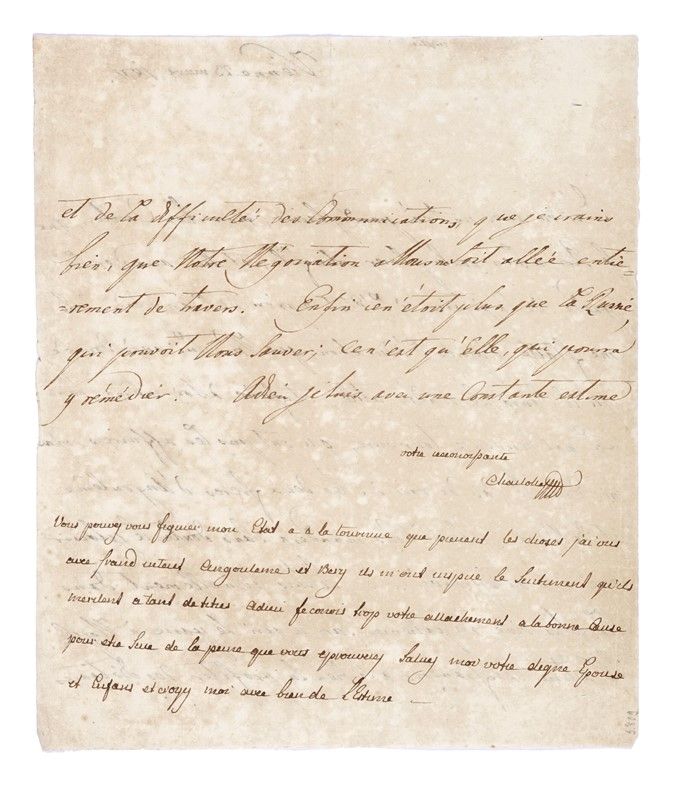 et de la difficulté des Communications, que je crains
bien, que Notre Négociation à Vous ne soit allée entiè=
=rement de travers. Enfin ce n'étoit plus que la Russie,
qui pouvoit Nous Sauver; ce n'est qu'Elle, qui pourra
y rémédier. Adieu je suis avec une Constante estime
votre reconoissante
Charlotte
Vous pouvez vous figurer mon Etat a la tournure que prenent les choses j'ai vus
avec Angouleme et Bery ils m'ont inspiré le Sentiment qu'ils
meritent a tant de titres Adieu je conois trop votre attachement a la bonne Cause
pour etre Sure de la peine que vous eprouverez Saluez moi votre digne Epouse
et Enfans et croyez moi avec bien de l'Estime